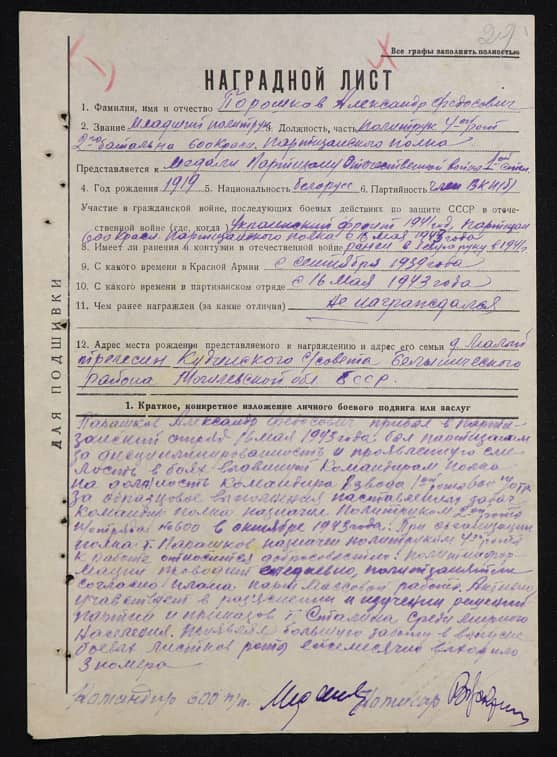 29
Все графы заполнять полностью
НАГРАДНОЙ ЛИСТ
1. Фамилия, имя и отчество Порошков Александр Федосович
2. Звание Младший политрук 3. Должность, часть политрук 4ой роты
2го батальна 600 Красн. Партизанского полка
Представляется к медали Партизану Отечественной войны 1ой степ.
4. Год рождения 1919 5. Национальность белорус 6. Партийность член ВКП(б)
Участие в гражданской войне, последующих боевых действиях по защите СССР и отече-
ственной войне (где, когда) Украинский фронт 1941 г, Партизан
600 Красн. Партизанского полка 16 мая 1943 года
8. Имеет ли ранения и контузии в отечественной войне ранен в руку в 1941 г.
9. С какого времени в Красной Армии с сентября 1939 года
10. С какого времени в партизанском отряде с 16 мая 1943 года
11. Чем ранее награжден (за какие отличия) Не награждался
12. Адрес места рождения представляемого к награждению и адрес его семьи д. Малой
Трелесин Кудинского с/совета Белыничского
района Могилевской обл. БССР.
ДЛЯ ПОДШИВКИ
1. Краткое, конкретное изложение личного боевого подвига или заслуг
Парашков Александр Федосович прибыл в парти-
занский отряд 16 мая 1943 года. был партизаном
за дисциплинированность и проявленную сме-
лость в боях командиром полка
на должность командира взвода 1ой
За образцовое выполнение задач
Командир полка назначил Политруком 2ой роты
отряда №600 в октябре 1943 года. При организации
полка т. Парашков назначен политруком 4ой роты
к работе относится добросовестно.
проводит ежедневно, политзанятия
согласно плана парт. массовой работы. Активно
участвует в разяснении и изучении решений
партии и приказов т. Сталина среди мирного
населения. Проявляя большую заботу в выпуске
боевых листков роты ежемесячно выходило
3 номера
Командир 600 п/п. Комисар